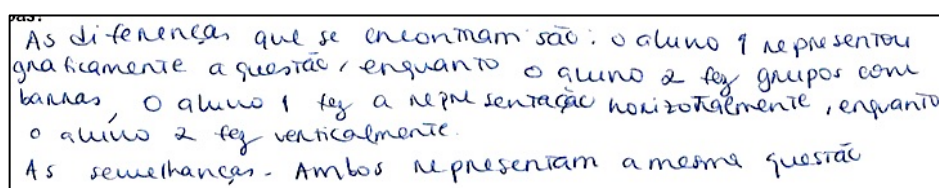 As diferenças que se encontram são: o aluno 1 representou
graficamente a questão, enquanto o aluno 2 fez grupos com
barras, o aluno 1 fez a representação horizontalmente, enquanto
o aluno 2 fez verticalmente.
As semelhanças. Ambos representam a mesma questão